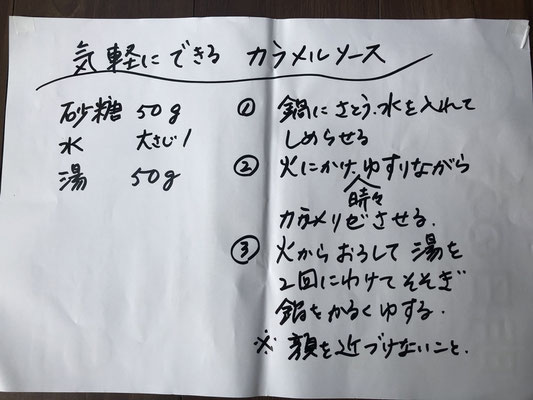 気軽にできる カラメルソース
砂糖 50g
水 大さじ1
湯 50g
① 鍋にさとう、水を入れて
しめらせる
② 火にかけ、ゆすりながら
時々
カラメリゼさせる.
③ 火からおろして 湯を
2回にわけてそそぎ
鍋をかるくゆする.
※ 顔を近づけないこと.